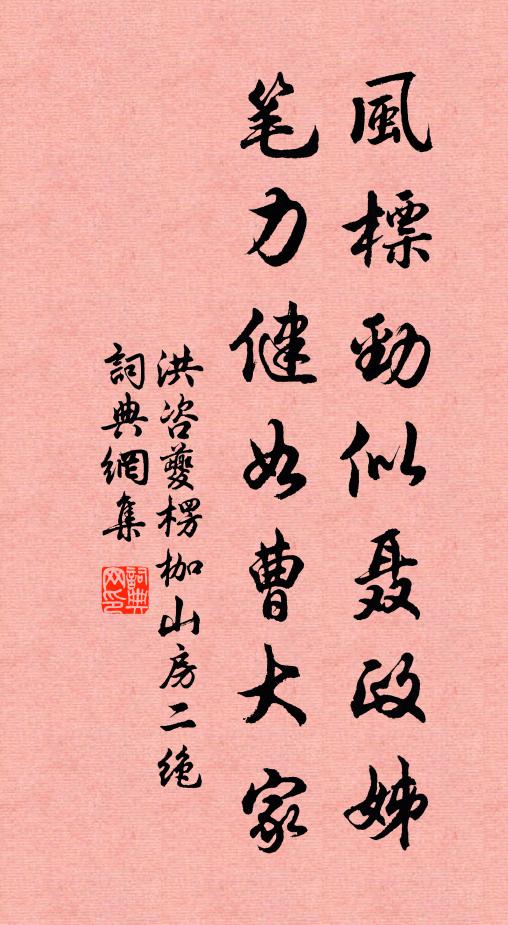 風標勁似聂政姊
笔力健如曹大家
洪咨夔楞枷山房二绝
詞典網集
詞典网印